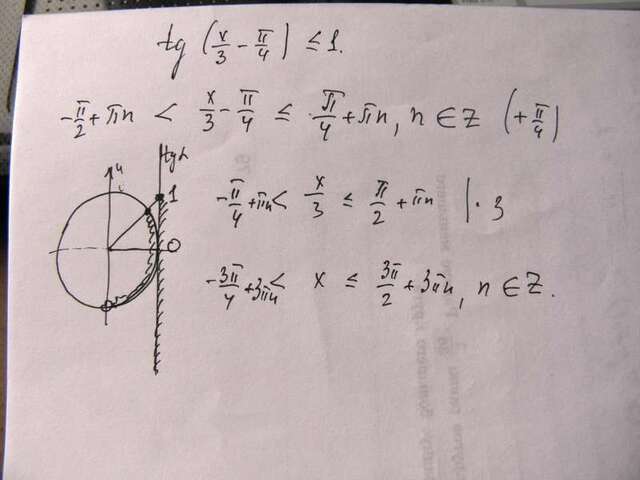 tg (x/3 - π/4) ≤ 1.
-π/2 + πn < x/3 - π/4 ≤ π/4 + πn, n ∈ Z (+π/4)
tgx
y
1
0
-π/4 + πn < x/3 ≤ π/2 + πn |· 3
-3π/4 + 3πn < x ≤ 3π/2 + 3πn, n ∈ Z.